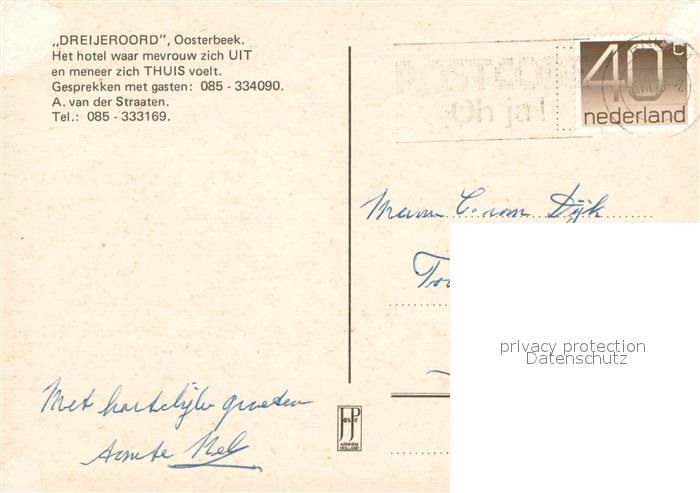 „DREIJEROORD”, Oosterbeek.
Het hotel waar mevrouw zich UIT
en meneer zich THUIS voelt.
Gesprekken met gasten: 085 - 334090.
A. van der Straaten.
Tel.: 085 - 333169.
POSTCODE
Oh ja!
40c
nederland
C. van Dijk
privacy protection
Datenschutz
Met hartelijke groeten
tante Nel
JosPé
ARNHEM
HOLLAND